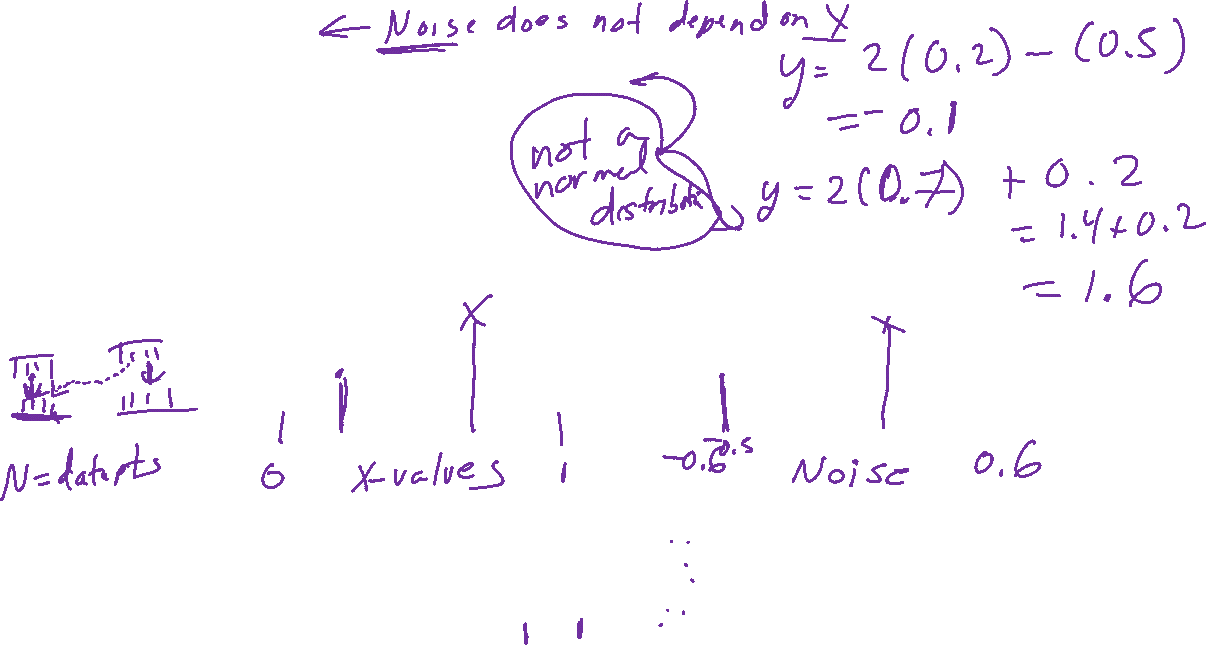 ← Noise does not depend on X
y = 2(0.2) - (0.5)
= -0.1
not a
normal
distributn
y = 2(0.7) + 0.2
= 1.4+0.2
= 1.6
N=datapts
0 X-values 1
-0.6 -0.5 Noise 0.6